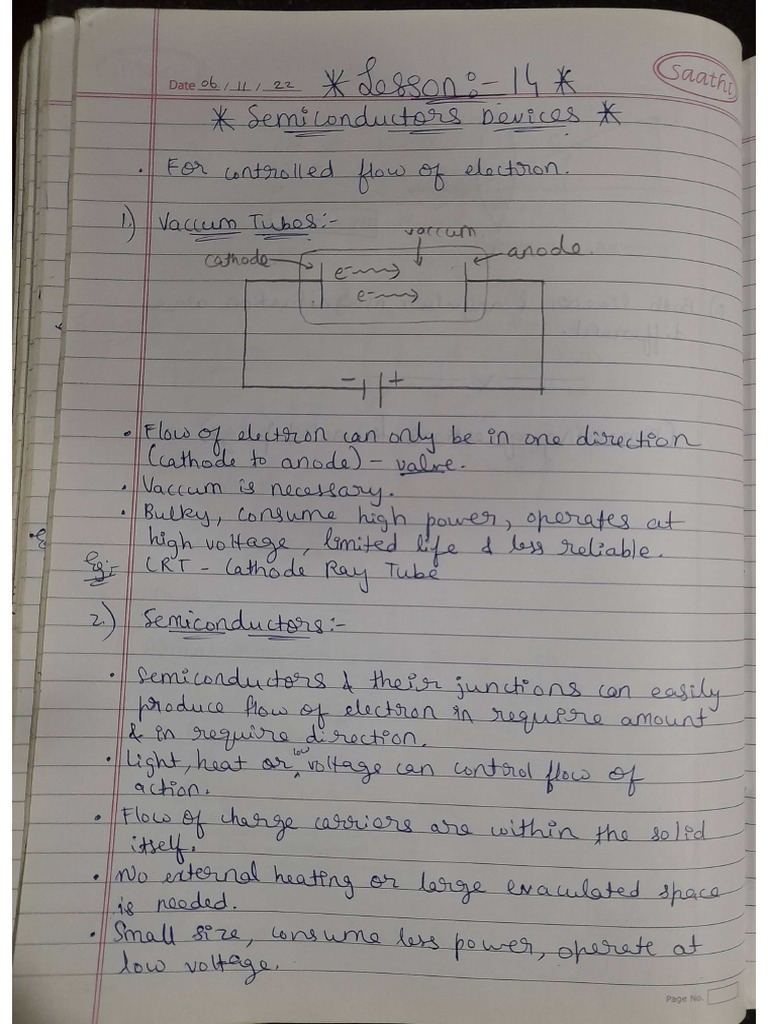 Date 06 / 11 / 22 * Lesson:- 14 * Saathi
* Semiconductors Devices *
. For controlled flow of electron.
1.) Vaccum Tubes:-
vaccum
cathode anode.
e-
e-
- +
. Flow of electron can only be in one direction
(cathode to anode) - valve.
. Vaccum is necessary.
. Bulky, consume high power, operates at
high voltage, limited life & less reliable.
Eg:- CRT - Cathode Ray Tube
2.) Semiconductors:-
. Semiconductors & their junctions can easily
produce flow of electron in require amount
& in require direction.
. Light, heat or low voltage can control flow of
action.
. Flow of charge carriers are within the solid
itself.
. No external heating or large evaculated space
is needed.
. Small size, consume less power, operate at
low voltage.
Page No.